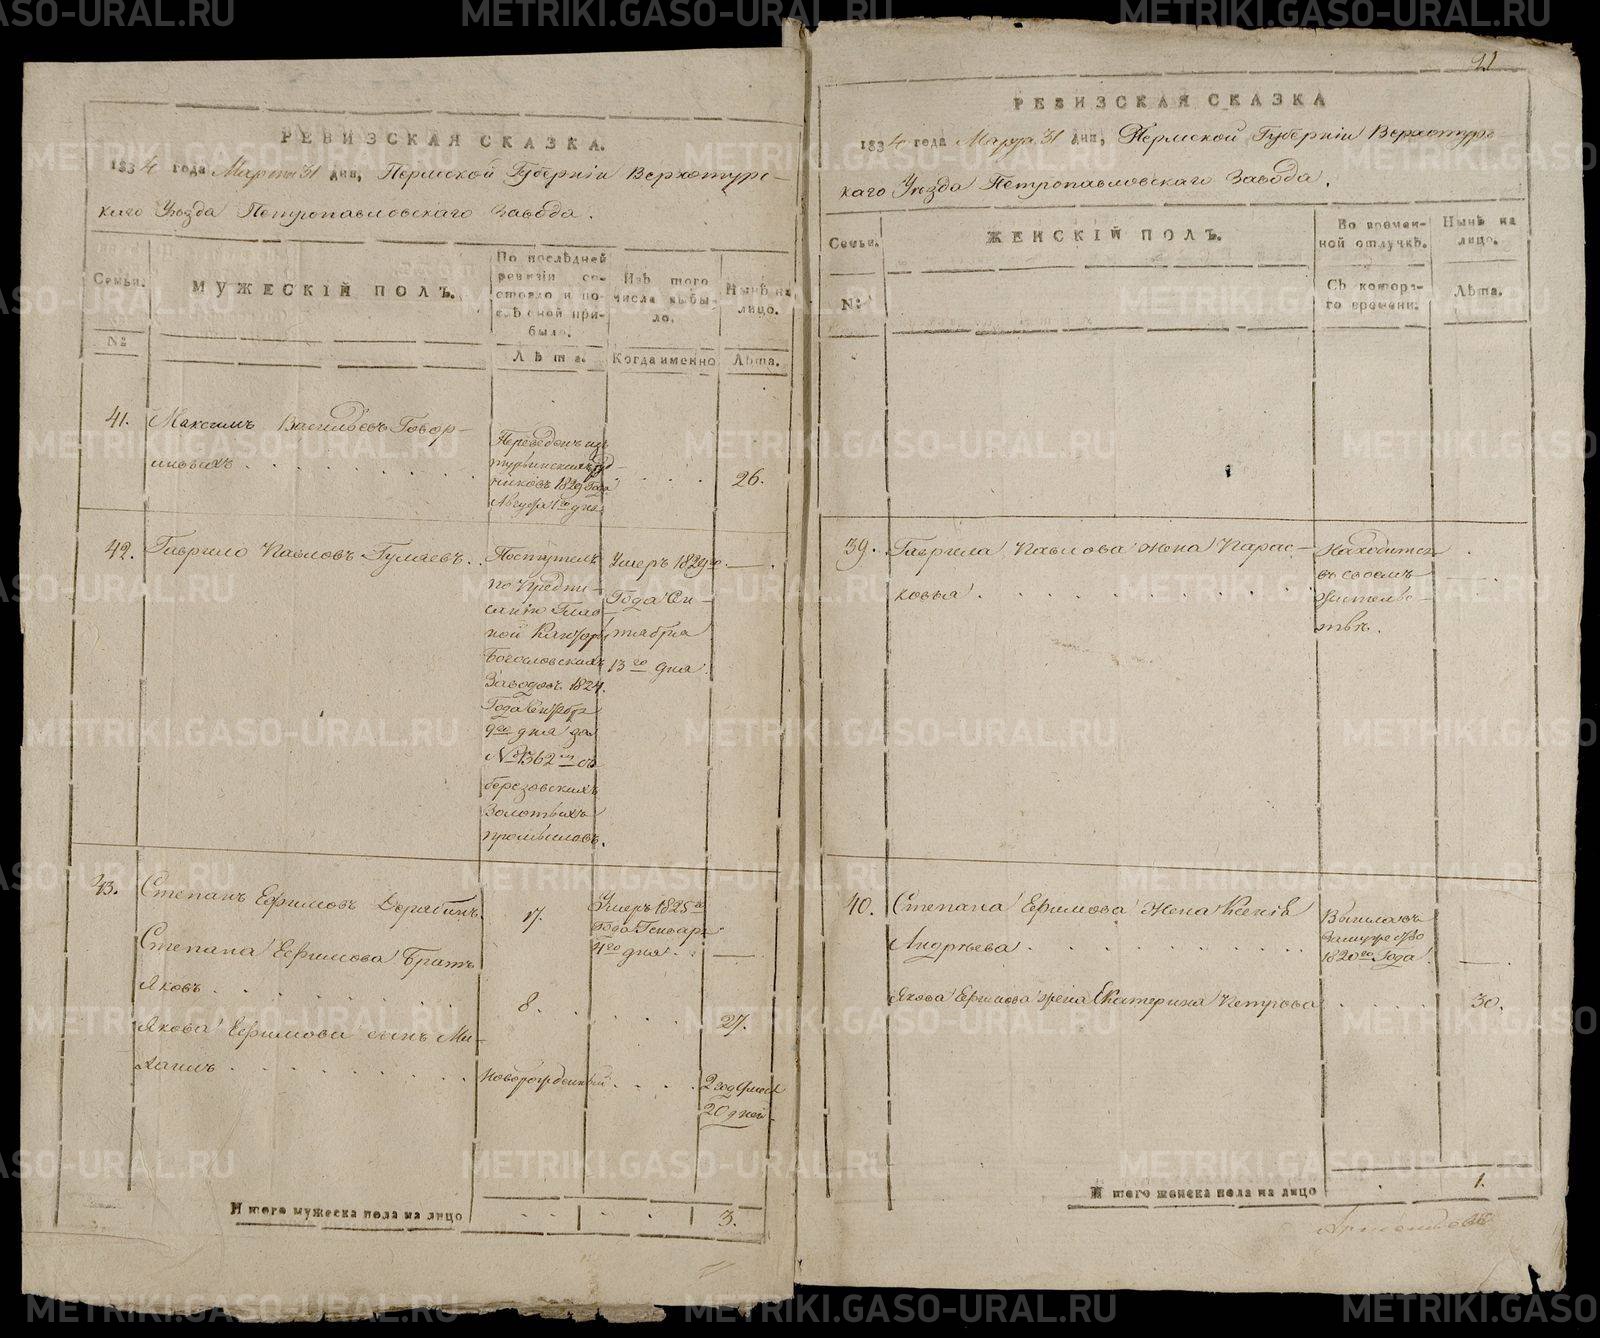 РЕВИЗСКАЯ СКАЗКА.
1834 года Марта 31 дня, Пермской Губерніи Верхотурс-
каго Уѣзда Петропавловскаго Завода.
Семьи.
№:
МУЖЕСКІЙ ПОЛЪ.
По послѣдней
ревизіи со-
стояло и по-
слѣ оной при-
было.
Лѣта.
Изъ того
числа выбы-
ло.
Когда именно
Нынѣ на
лицо.
Лѣта.
41. Максимъ Васильевъ Говор-
ливыхъ
Переведенъ изъ
турьинскихъ руд-
никовъ 1829 года
Августа 1го дня
26.
42. Гаврило Павловъ Гуляевъ
Поступилъ
по предпи-
санію Глав-
ной Канторы
Богословскихъ
Заводовъ 1824.
Года
9го дня за
№ 1362мъ съ
березовскихъ
Золотыхъ
промысловъ.
Умеръ 1829го
Года Сен-
тября
13го дня.
43. Степанъ Ефимовъ Дерябинъ.
17.
Умеръ 1825го
Года Генваря
4го дня.
Степана Ефимова Братъ
Яковъ
8.
27.
Якова Ефимова сынъ Ми-
хаилъ
Новорожденный
2 год
20 дней.
Итого мужеска пола на лицо
3.
21
РЕВИЗСКАЯ СКАЗКА
1834 года Марта 31 дня, Пермской Губерніи Верхотурс-
каго Уѣзда Петропавловскаго Завода.
Семьи.
№:
ЖЕНСКІЙ ПОЛЪ.
Во времен-
ной отлучкѣ.
Съ котора-
го времени.
Нынѣ на
лицо.
Лѣта.
39. Гаврила Павлова жена Парас-
ковья
Находится
въ своемъ
жительс-
твѣ.
40. Степана Ефимова Жена Ксенія
Андрѣева
Вышла въ
Замужество
1820го Года
Якова Ефимова жена Екатерина Петрова
30.
Итого женска пола на лицо
1.
METRIKI.GASO-URAL.RU